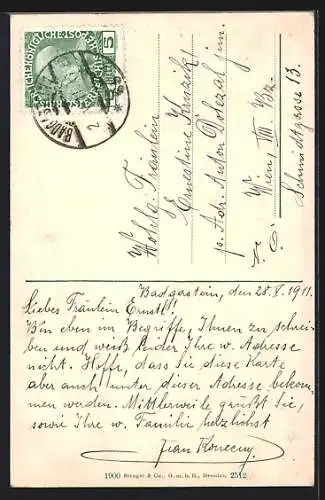 5
BADG
Wohlg. Fräulein
Ernestine
p. Adr. Anton Dolezal jun.
Wien, VIII. Bz.
Schmidtgasse 13.
Badgastein, den 28. V. 1911.
Liebes Fräulein Ernstl!
Bin eben im Begriffe, Ihnen zu schrei-
ben und weiß leider Ihre w. Adresse
nicht. Hoffe, dass Sie diese Karte
aber auch unter dieser Adresse bekom-
men werden. Mittlerweile grüßt Sie,
sowie Ihre w. Familie herzlichst
Konecny
1900 Stengel & Co., G. m. b. H., Dresden. 2512